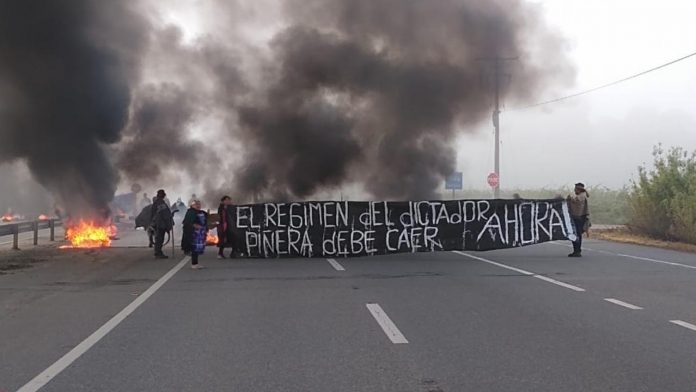 EL REGIMEN dEL dICTADOR
PIÑERA dEBE CAER AHORA!